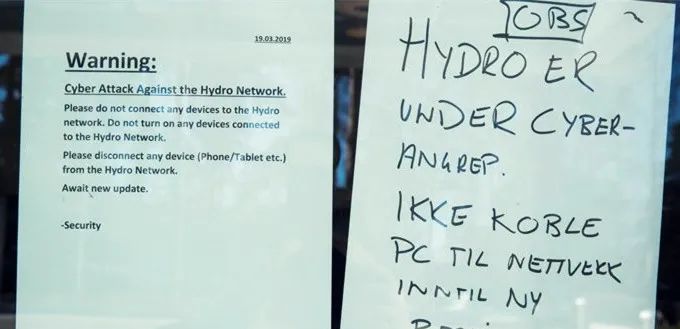 19.03.2019
Warning:
Cyber Attack Against the Hydro Network.
Please do not connect any devices to the Hydro
network. Do not turn on any devices connected
to the Hydro Network.
Please disconnect any device (Phone/Tablet etc.)
from the Hydro Network.
Await new update.
-Security
OBS
HYDRO ER
UNDER CYBER-
ANGREP.
IKKE KOBLE
PC TIL NETTVERK
INNTIL NY